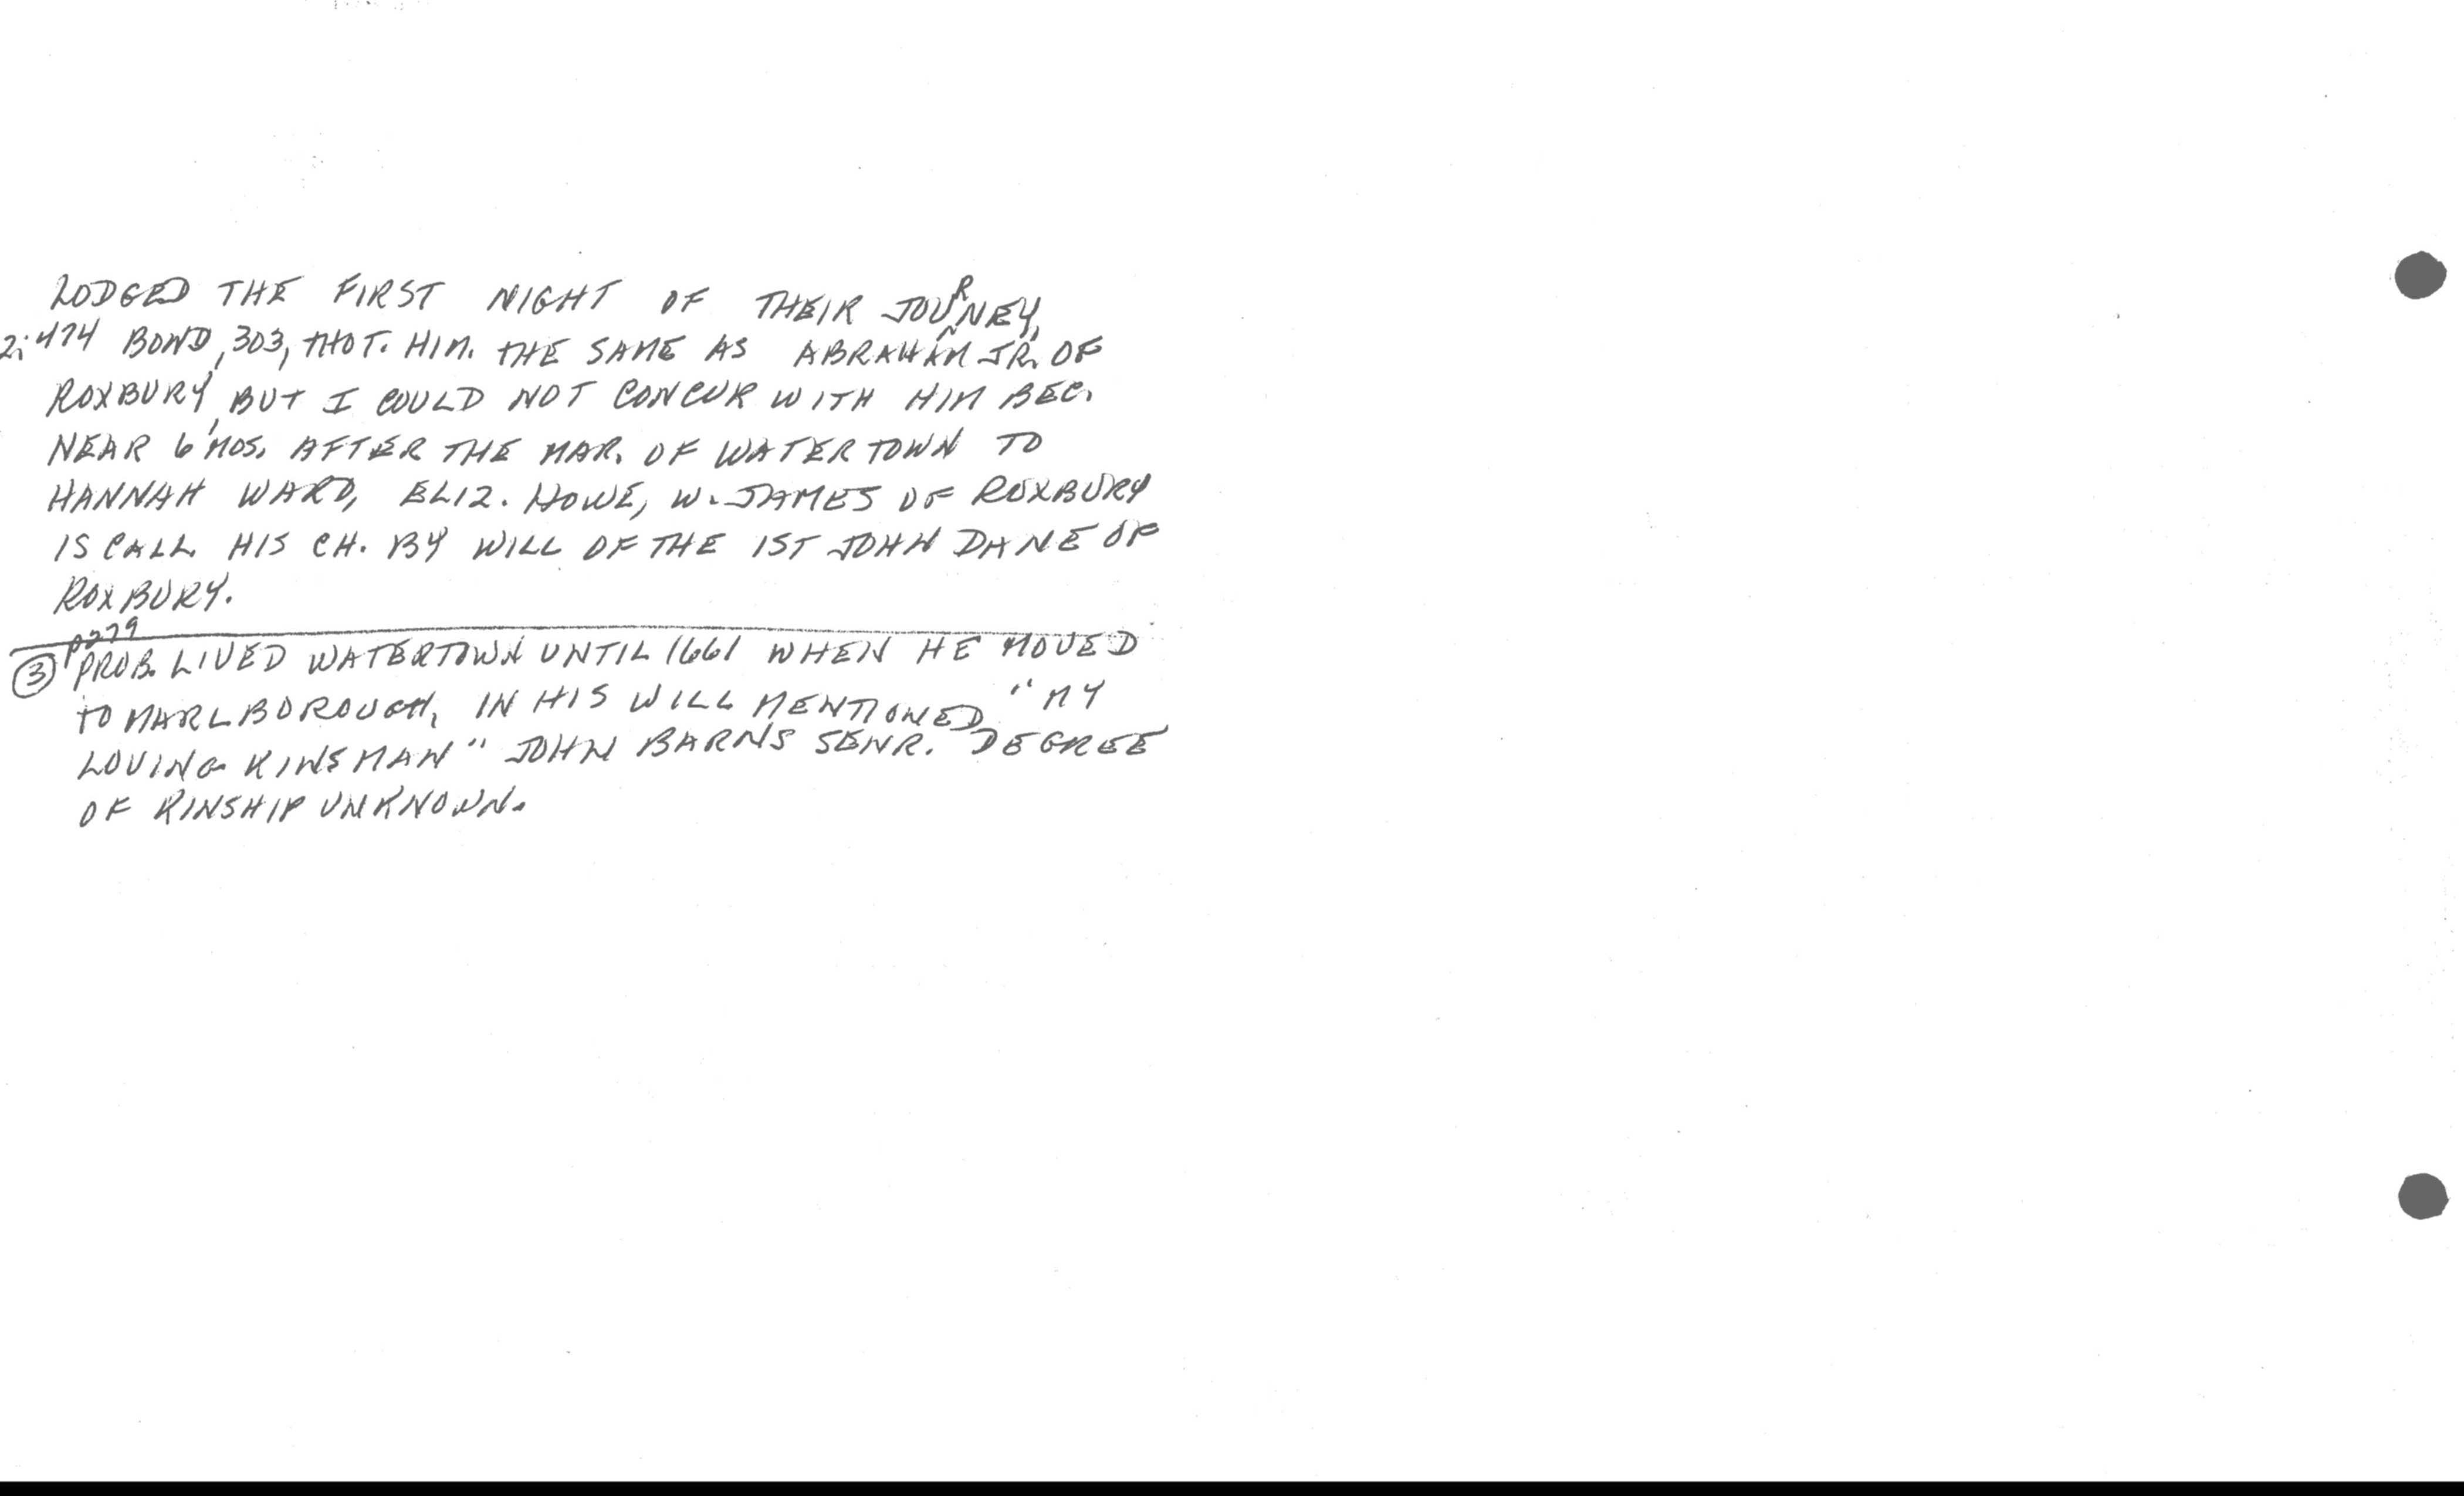 LODGED THE FIRST NIGHT OF THEIR JOURNEY,
2:474 BOND, 303, THOT. HIM. THE SAME AS ABRAHAM JR. OF
ROXBURY, BUT I COULD NOT CONCUR WITH HIM BEC.
NEAR 6 MOS. AFTER THE MAR. OF WATERTOWN TO
HANNAH WARD, ELIZ. HOWE, W. JAMES OF ROXBURY
IS CALL. HIS CH. BY WILL OF THE 1ST JOHN DANE OF
ROXBURY.
P279
③ PROB. LIVED WATERTOWN UNTIL 1661 WHEN HE MOVED
TO MARLBOROUGH, IN HIS WILL MENTIONED "MY
LOVING KINSMAN" JOHN BARNS SENR. DEGREE
OF KINSHIP UNKNOWN.